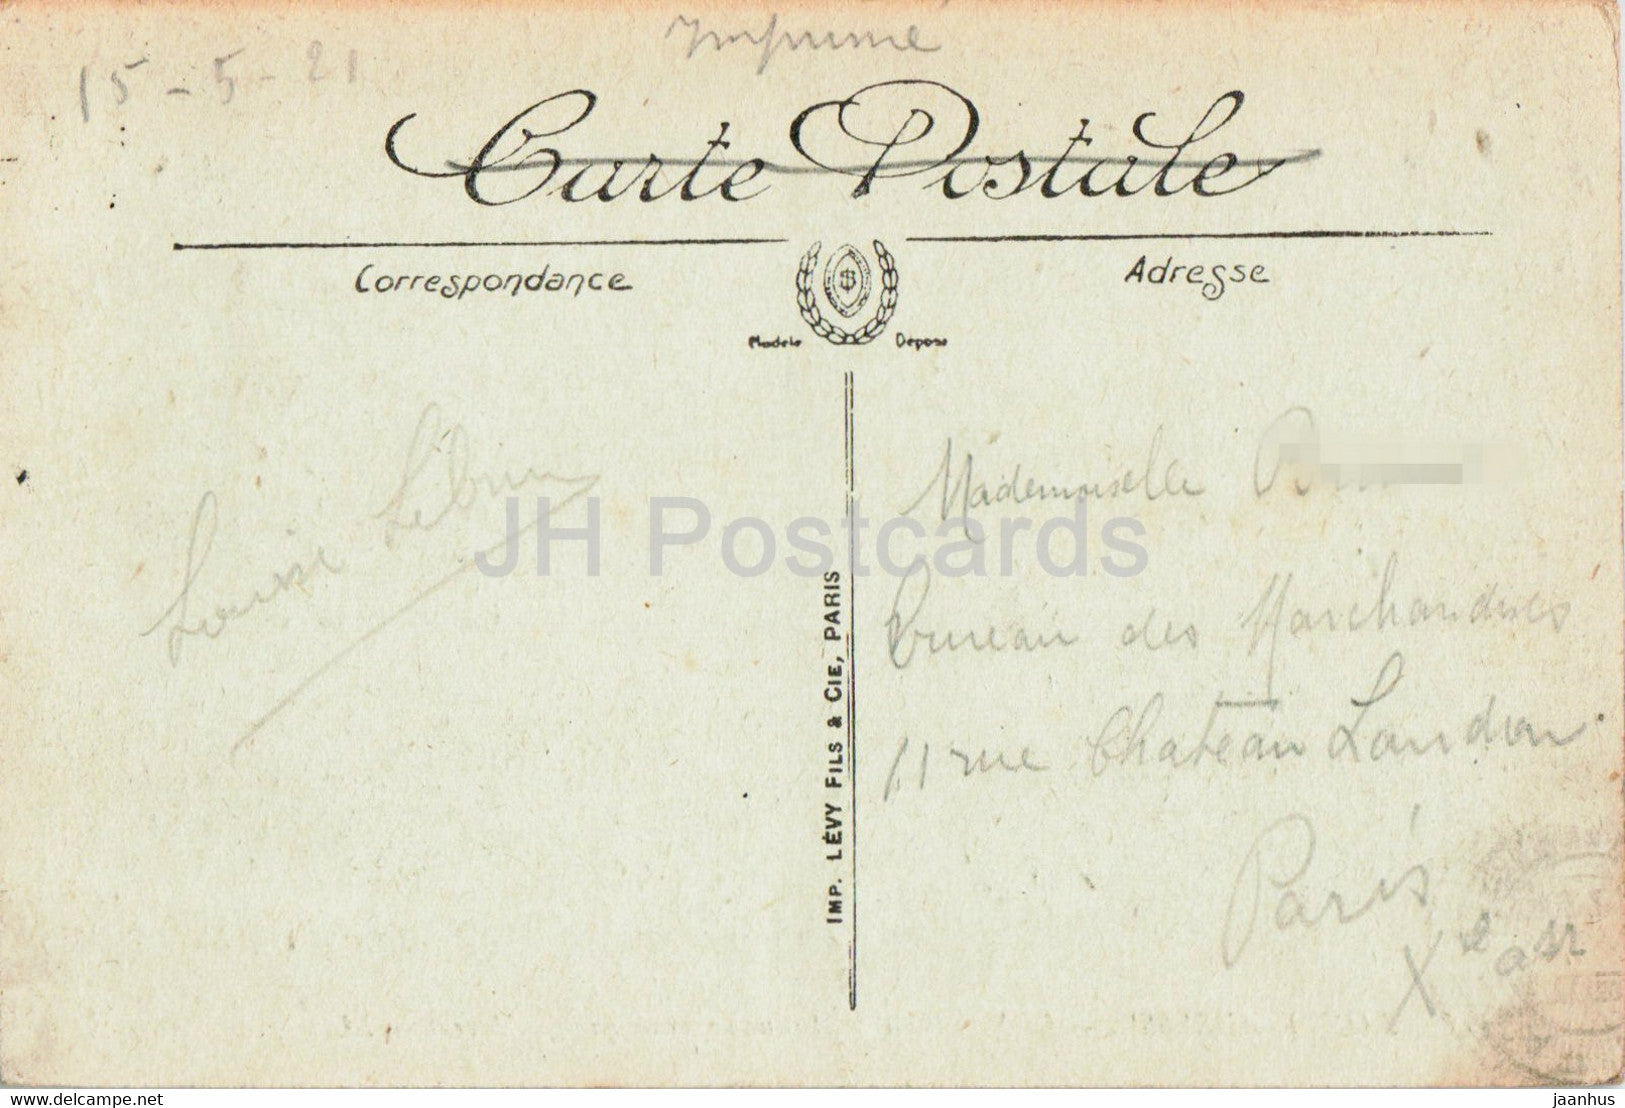 15-5-21
Imprime
Carte Postale
Correspondance
Adresse
$
Modèle Déposé
Louise Lebrun
Mademoiselle
Bureau des Marchandises
11 rue Chateau Landon
Paris
Xe
JH Postcards
IMP. LÉVY FILS & CIE, PARIS
delcampe.net
jaanhus